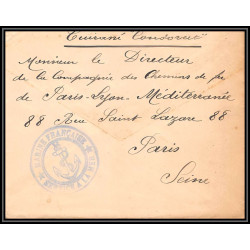 "Cuirassé Condorcet"
Monsieur le Directeur
de la Compagnie des Chemins de fer
de Paris-Lyon-Méditerranée
88 Rue Saint Lazare 88
Paris
Seine
MARINE FRANÇAISE